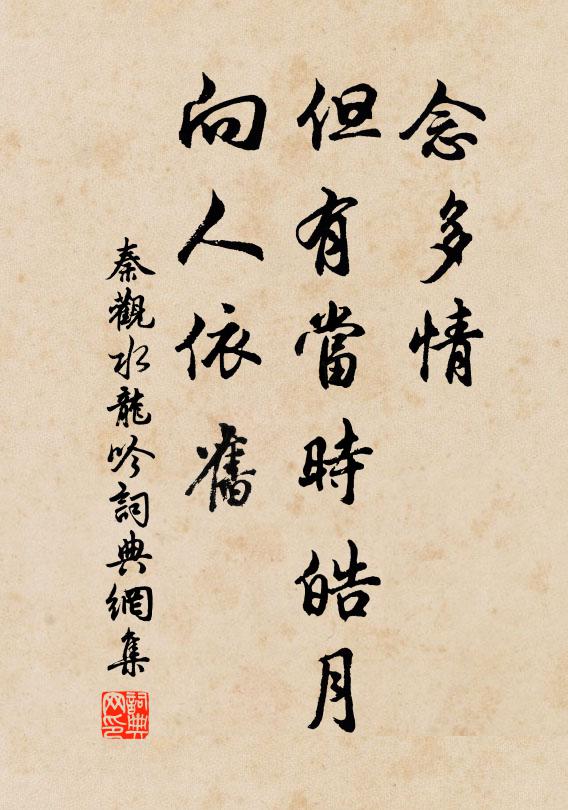 念多情
但有當時皓月
向人依舊
秦觀水龍吟詞典網集
詞典
网印